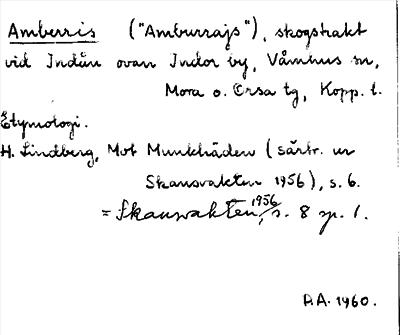 Amberris ("Amburrajs"), skogstrakt
vid Indån ovan Indor by, Våmhus sn,
Mora o. Orsa tg, Kopp. l.
Etymologi.
H. Lindberg, Mot Munkhäden (särtr. ur
Skansvakten 1956), s. 6.
= Skansvakten, 1956, s. 8 sp. 1.
P.A. 1960.